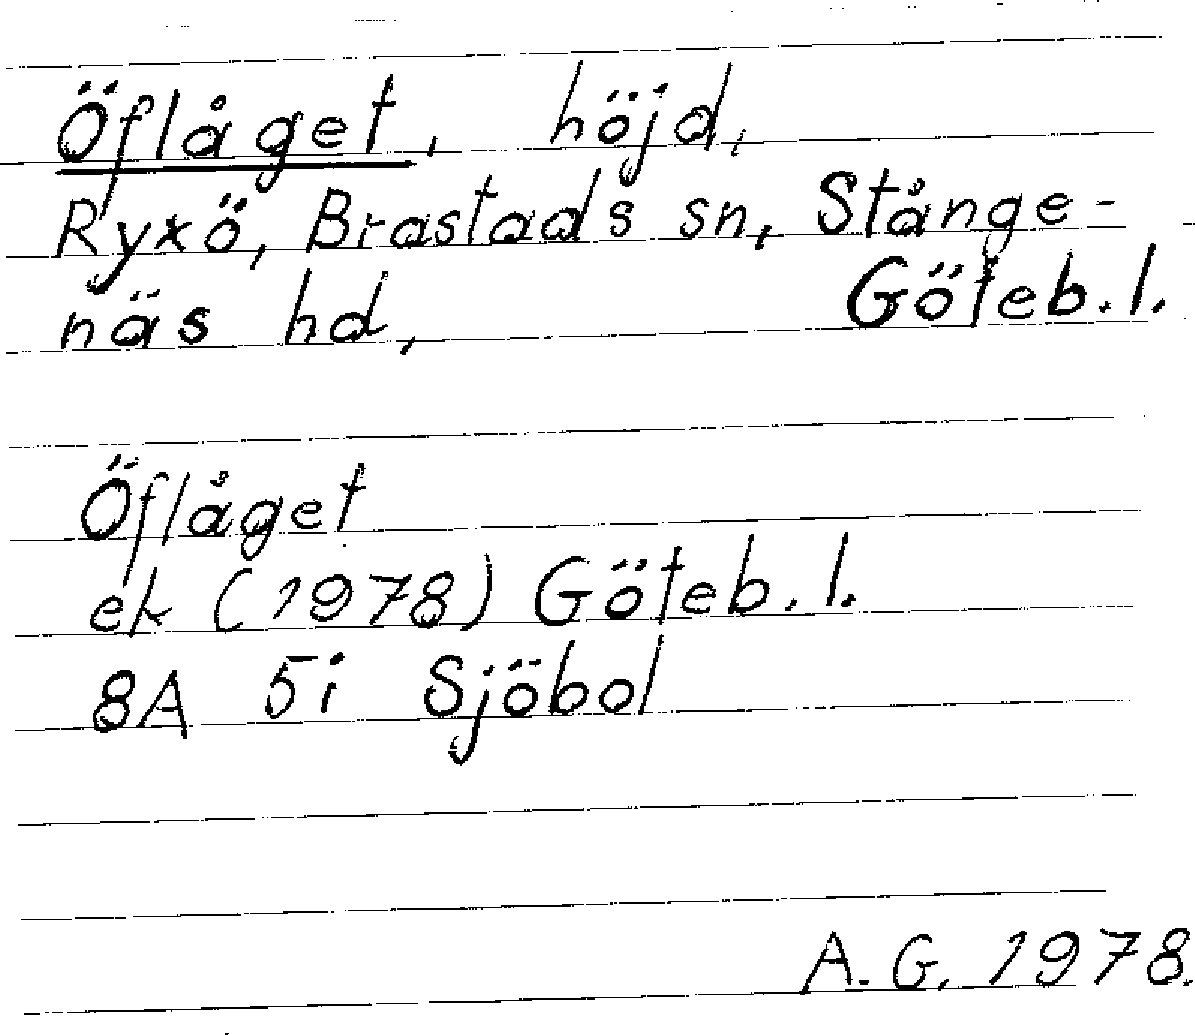 Öflåget, höjd,
Ryxö, Brastads sn, Stånge-
näs hd, Göteb. l.
Öflåget
ek (1978) Göteb. l.
8A 5i Sjöbol
A. G. 1978.